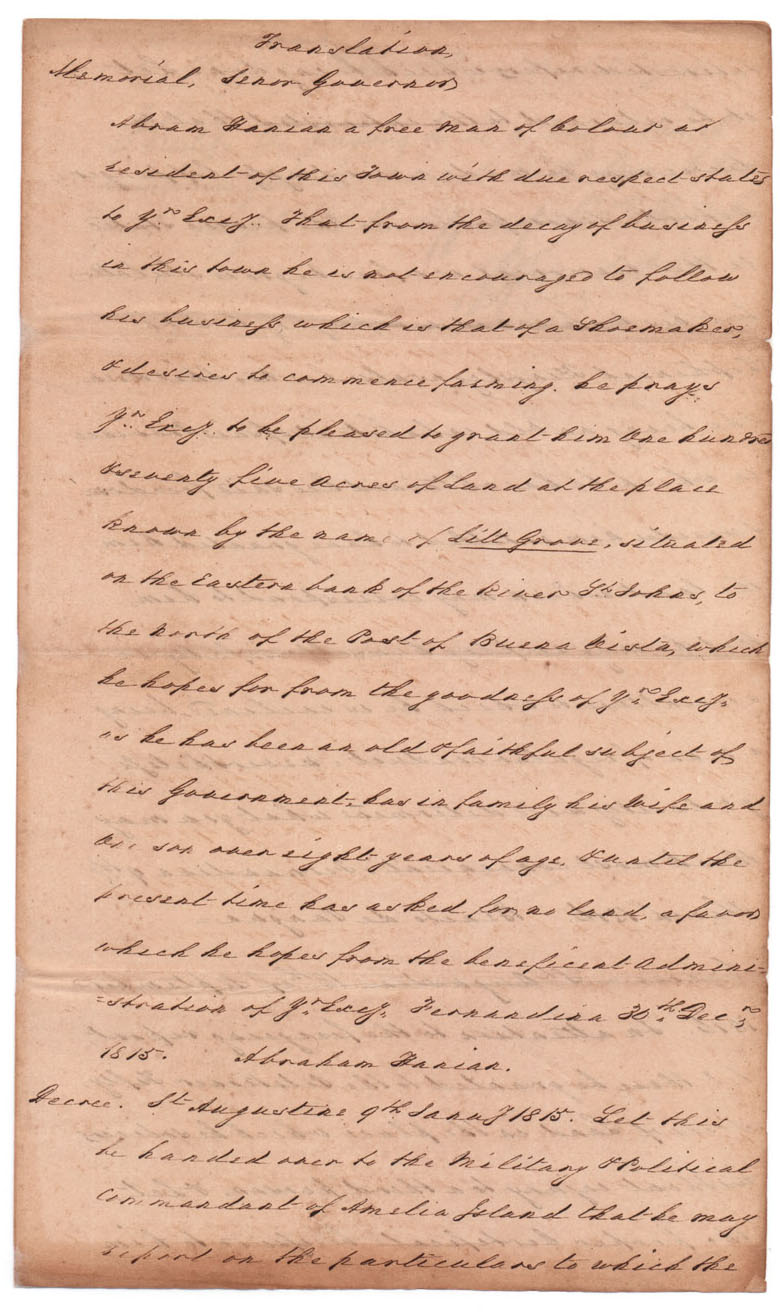 Translation,
Memorial, Senor Governor
Abram Hanian a free man of Colour a
resident of this Town with due respect states
to Yr. Excy. That from the decay of business
in this town he is not encouraged to follow
his business, which is that of a Shoemaker,
& desires to commence farming. he prays
Yr. Excy. to be pleased to grant him One hundred
& seventy five Acres of Land at the place
known by the name of Sill Grove, situated
on the Eastern bank of the River St. Johns, to
the North of the Post of Buena Vista, which
he hopes for from the goodness of Yr. Excy.
as he has been an old & faithful subject of
this Government, has in family his Wife and
One son over eight years of age, & until the
present time has asked for no land, a favor
which he hopes from the beneficent Admini-
=stration of Yr. Excy. Fernandina 30th. Decr.
1815. Abraham Hanian.
Decree. St. Augustine 9th. Janry 1815. Let this
be handed over to the Military & Political
Commandant of Amelia Island that he may
report on the particulars to which the